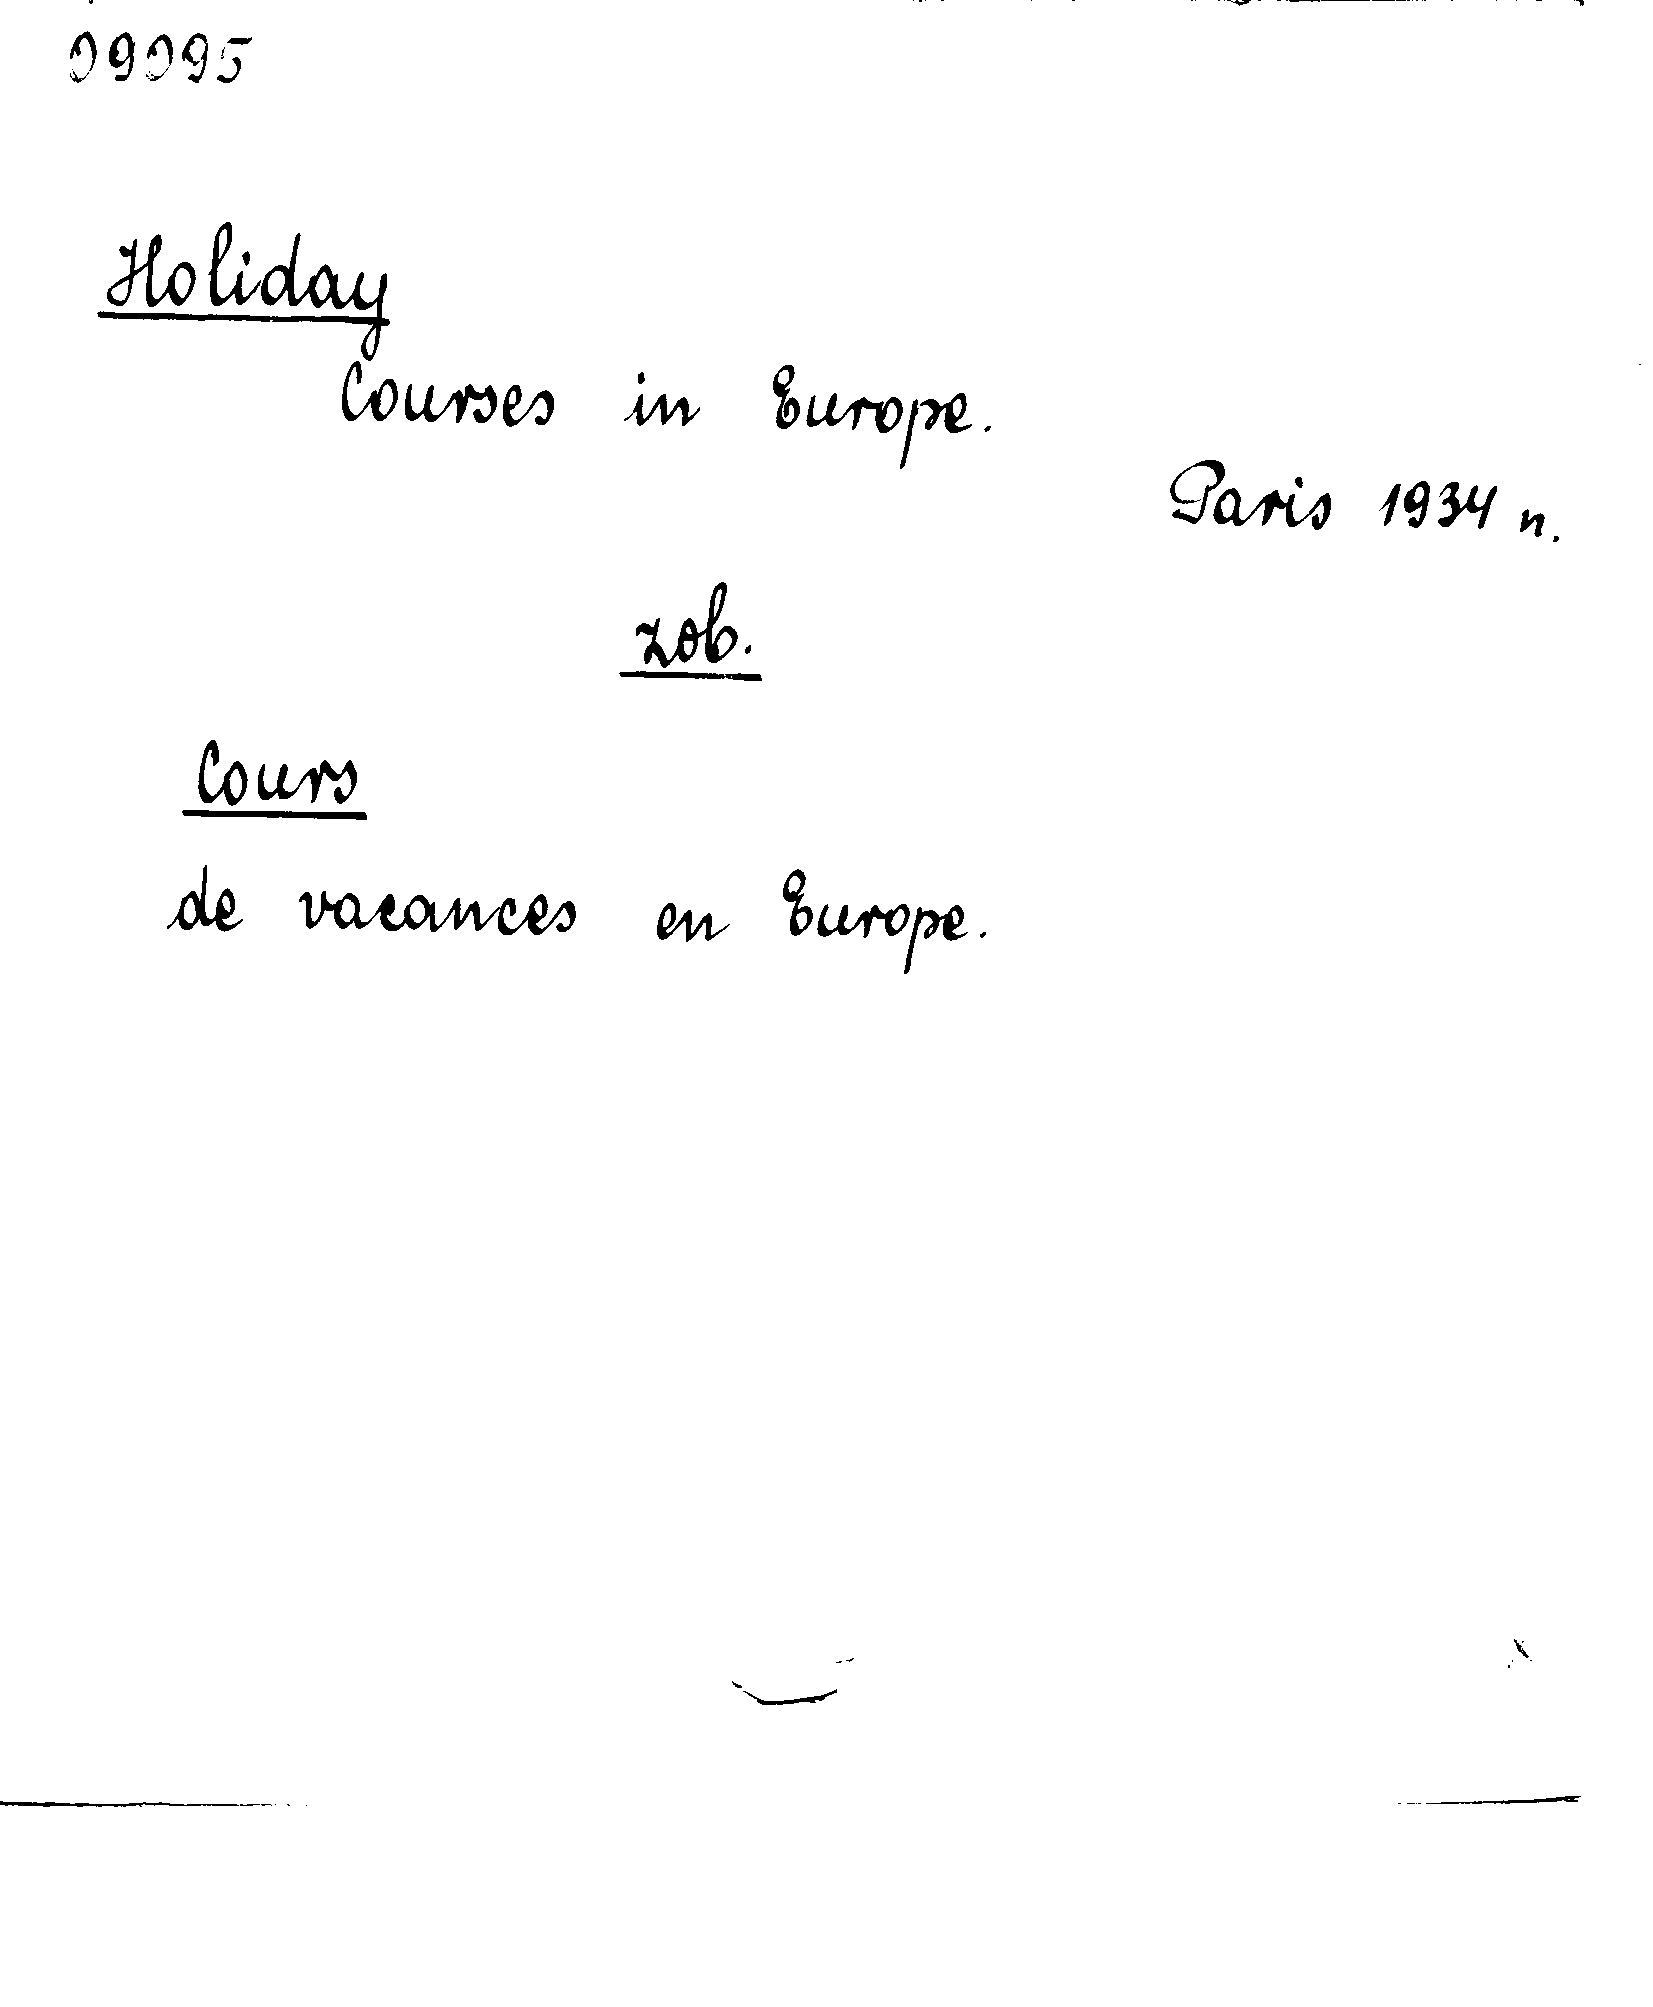 09095
Holiday
Courses in Europe.
Paris 1934 n.
zob.
Cours
de vacances en Europe.